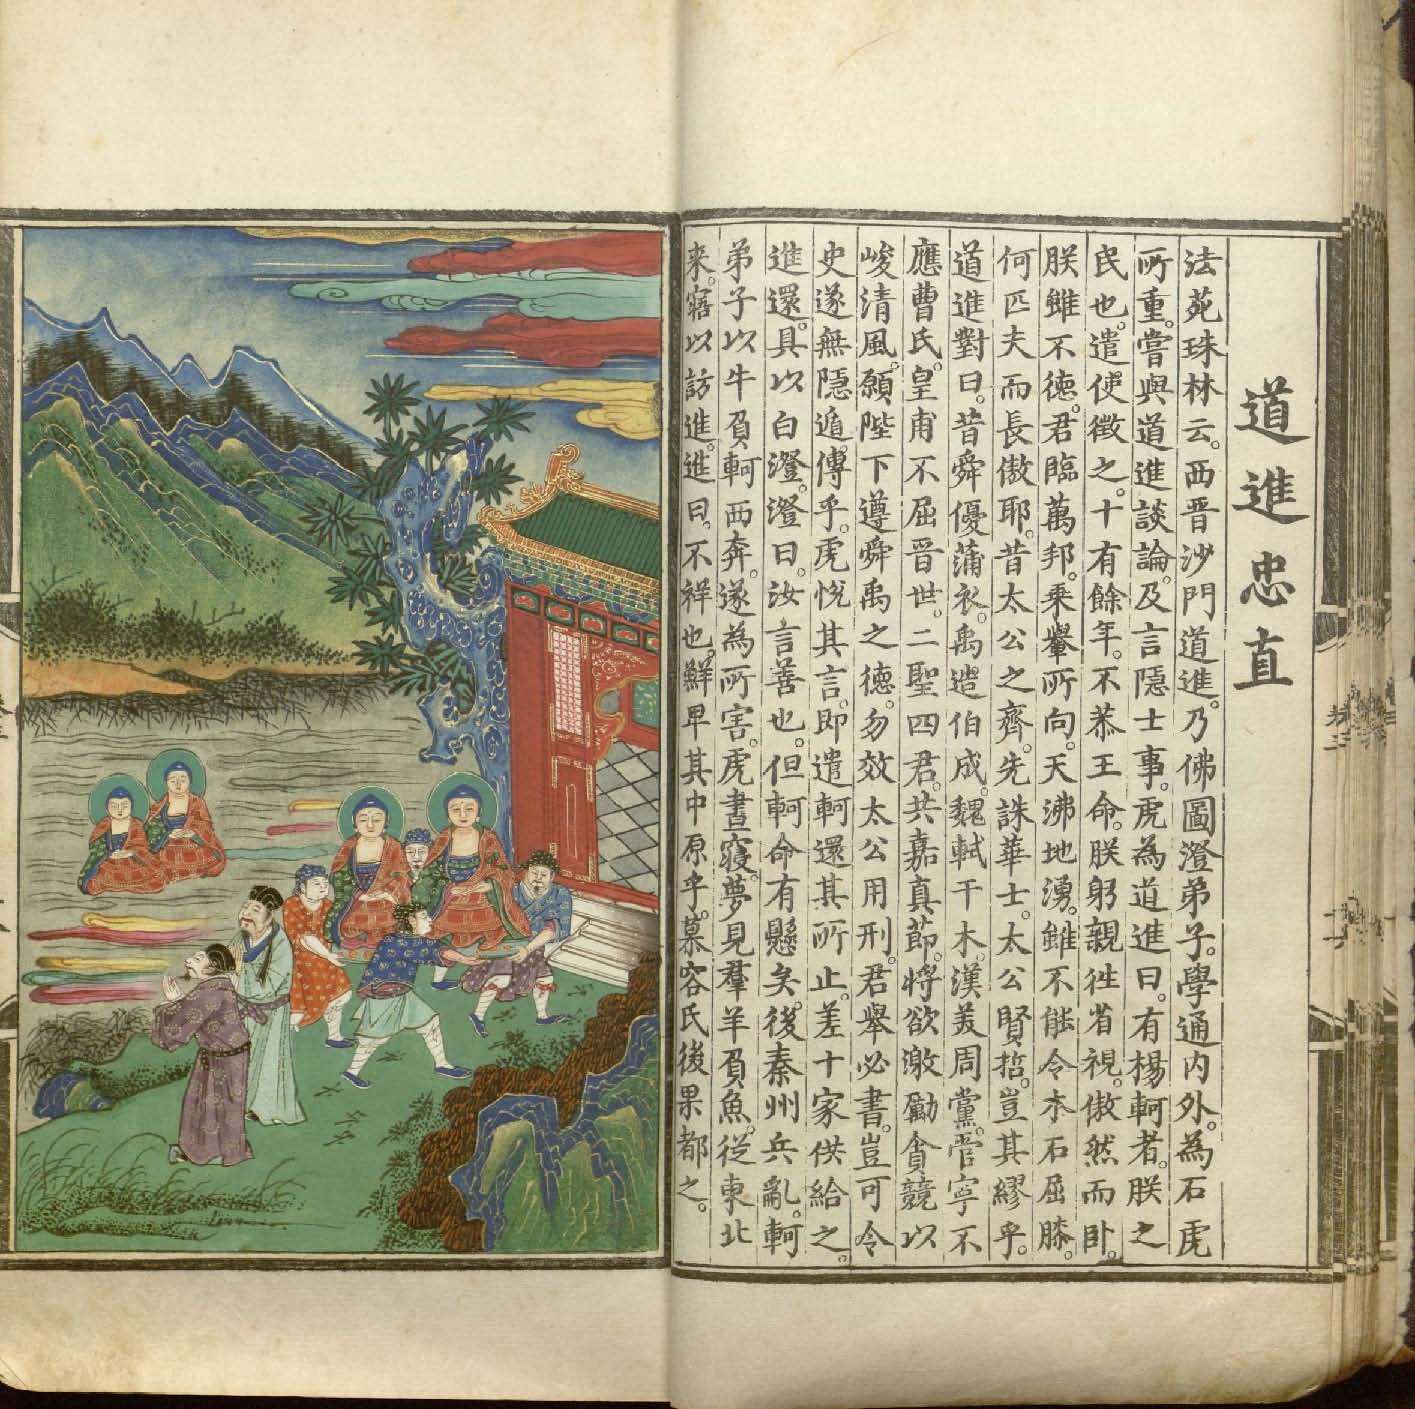 道進忠直
法苑珠林云。西晋沙門道進。乃佛圖澄弟子。學通内外。為石虎
所重。嘗與道進談論。及言隱士事。虎為道進曰。有楊軻者。朕之
民也。遣使徵之。十有餘年。不恭王命。朕躬親徃省視。傲然而卧。
朕雖不德。君臨萬邦。乗轝所向。天沸地湧。雖不能令木石屈膝。
何匹夫而長傲耶。昔太公之齊。先誅華士。太公賢哲。豈其繆乎。
道進對曰。昔舜優蒲衣。禹造伯成。魏軾干木。漢美周黨。管寧不
應曹氏。皇甫不屈晋世。二聖四君。共嘉真節。將欲激勵貪競以
峻清風。願陛下遵舜禹之德。勿效太公用刑。君舉必書。豈可令
史遂無隱遁傳乎。虎悅其言。即遣軻還其所止。差十家供給之。
進還。具以白澄。澄曰。汝言善也。但軻命有懸矣。後秦州兵亂。軻
弟子以牛負軻西奔。遂為所害。虎晝寢。夢見羣羊負魚。從東北
来。寤以訪進。進曰。不祥也。鮮卑其中原乎。慕容氏後果都之。